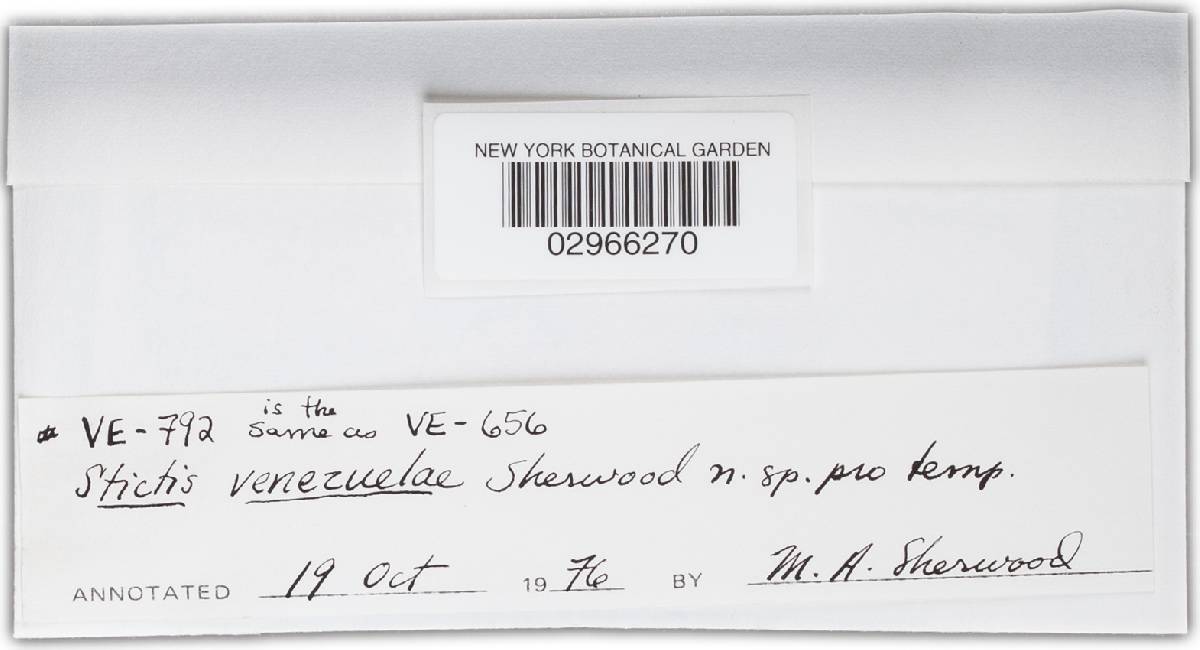 NEW YORK BOTANICAL GARDEN
02966270
* VE-792 is the same as VE-656
Stictis venezuelae Sherwood n. sp. pro temp.
ANNOTATED 19 Oct 1976 BY M. A. Sherwood